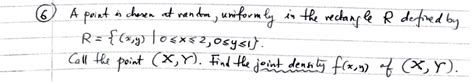 ⑥ A point is chosen at random, uniformly in the rectangle R defined by
R = {(x,y) | 0≤x≤2, 0≤y≤1}.
Call the point (X,Y). Find the joint density f(x,y) of (X,Y).